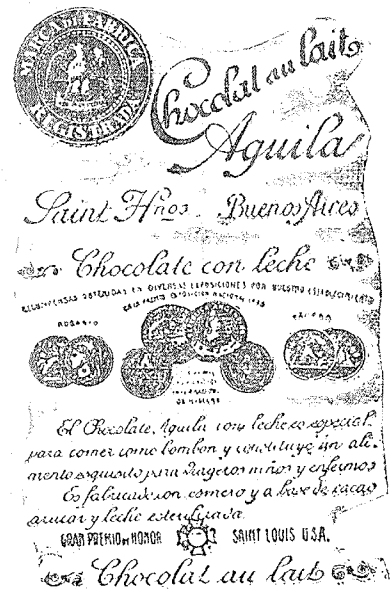 MARCA DE FABRICA
REGISTRADA
Chocolat au lait
Aguila
Saint Hnos. Buenos Aires
Chocolate con leche
RECOMPENSAS OBTENIDAS EN DIVERSAS EXPOSICIONES POR NUESTRO ESTABLECIMIENTO
GRAN PREMIO EXPOSICION NACIONAL
ROSARIO
El Chocolate Aguila con leche es especial
para comer como bombon y constituye un ali-
mento exquisito para viageros niños y enfermos
Es fabricado con esmero y a base de cacao
azucar y leche esterilizada.
GRAN PREMIO DE HONOR SAINT LOUIS U.S.A.
Chocolat au lait